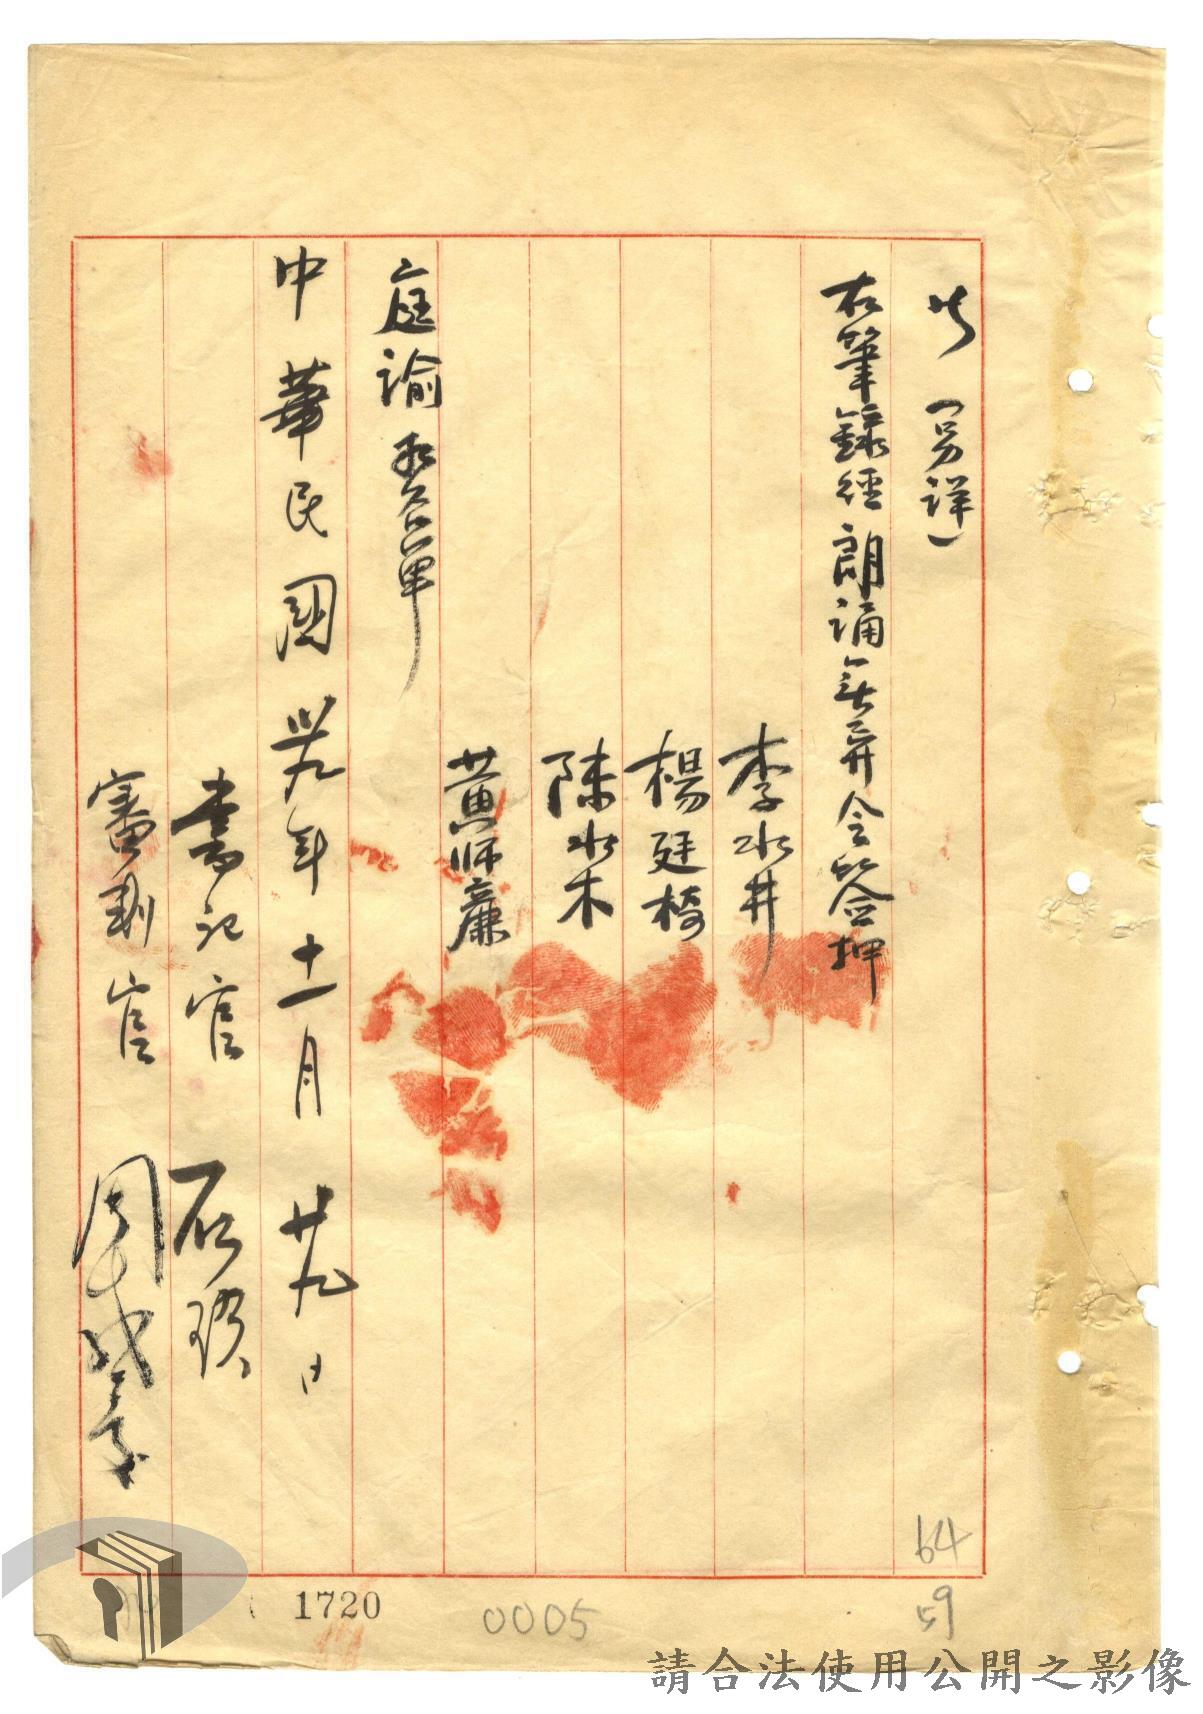 （另詳）
右筆錄經朗誦無異令簽押
李水井
楊廷椅
陳水木
黃師廉
庭諭
中華民國卅九年十一月廿九日
書記官
審判官 周咸慶
64
59
1720
0005
請合法使用公開之影像